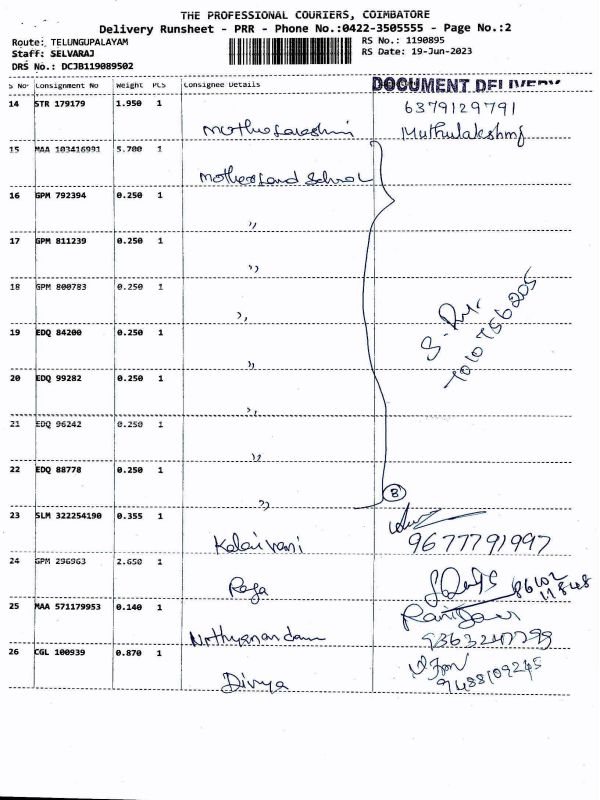 THE PROFESSIONAL COURIERS, COIMBATORE
Delivery Runsheet - PRR - Phone No.:0422-3505555 - Page No.:2
Route: TELUNGUPALAYAM
RS No.: 1190895
Staff: SELVARAJ
RS Date: 19-Jun-2023
DRS No.: DCJB119089502
S No Consignment No Weight PCS Consignee Details DOCUMENT DELIVERY
14 STR 179179 1.950 1 6379129791
Muthulakshmi
15 MAA 103416991 5.700 1
Motherland School
16 GPM 792394 0.250 1
,,
17 GPM 811239 0.250 1
,,
18 GPM 800783 0.250 1
,,
19 EDQ 84200 0.250 1
,,
20 EDQ 99282 0.250 1
,,
21 EDQ 96242 0.250 1
,,
22 EDQ 88778 0.250 1
,,
8
23 SLM 322254190 0.355 1
Kalaivani 9677791997
24 GPM 296963 2.650 1
Raja
25 MAA 571179953 0.140 1
26 CGL 100939 0.870 1
Divya 9488109245